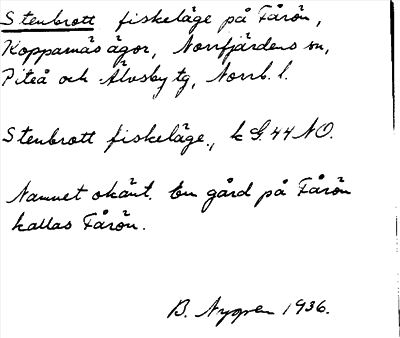 Stenbrott fiskeläge på Fårön,
Kopparnäs ägor, Norrfjärdens sn,
Piteå och Älvsby tg, Norrb. l.
Stenbrott fiskeläge., k S. 44 NO.
Namnet okänt. En gård på Fårön
kallas Fårön.
B. Nygren 1936.